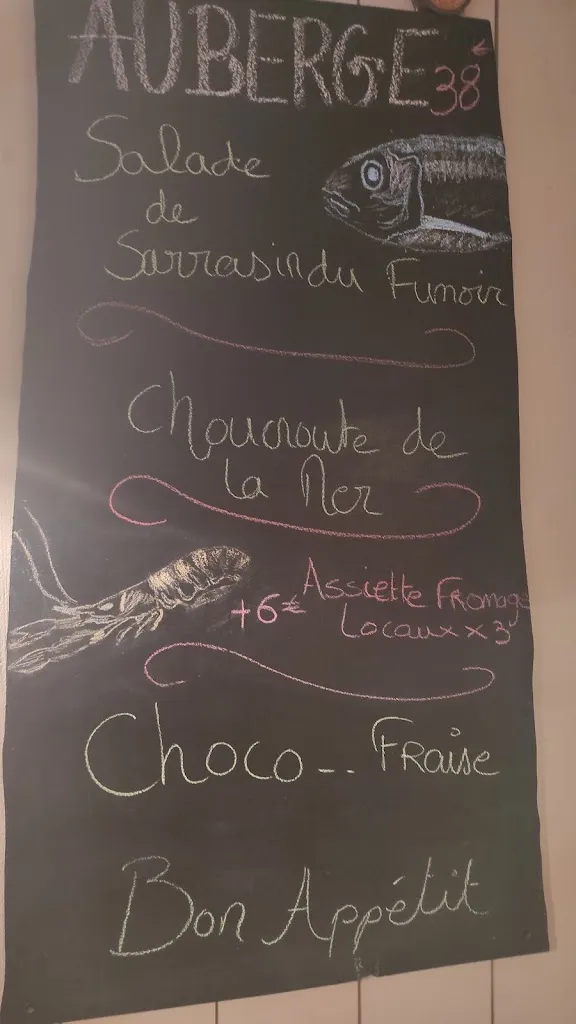 AUBERGE 38 €
Salade
de
Sarrasin du Fumoir
Choucroute de
la Mer
Assiette Fromage
+6€ Locaux x 3
Choco -- Fraise
Bon Appétit